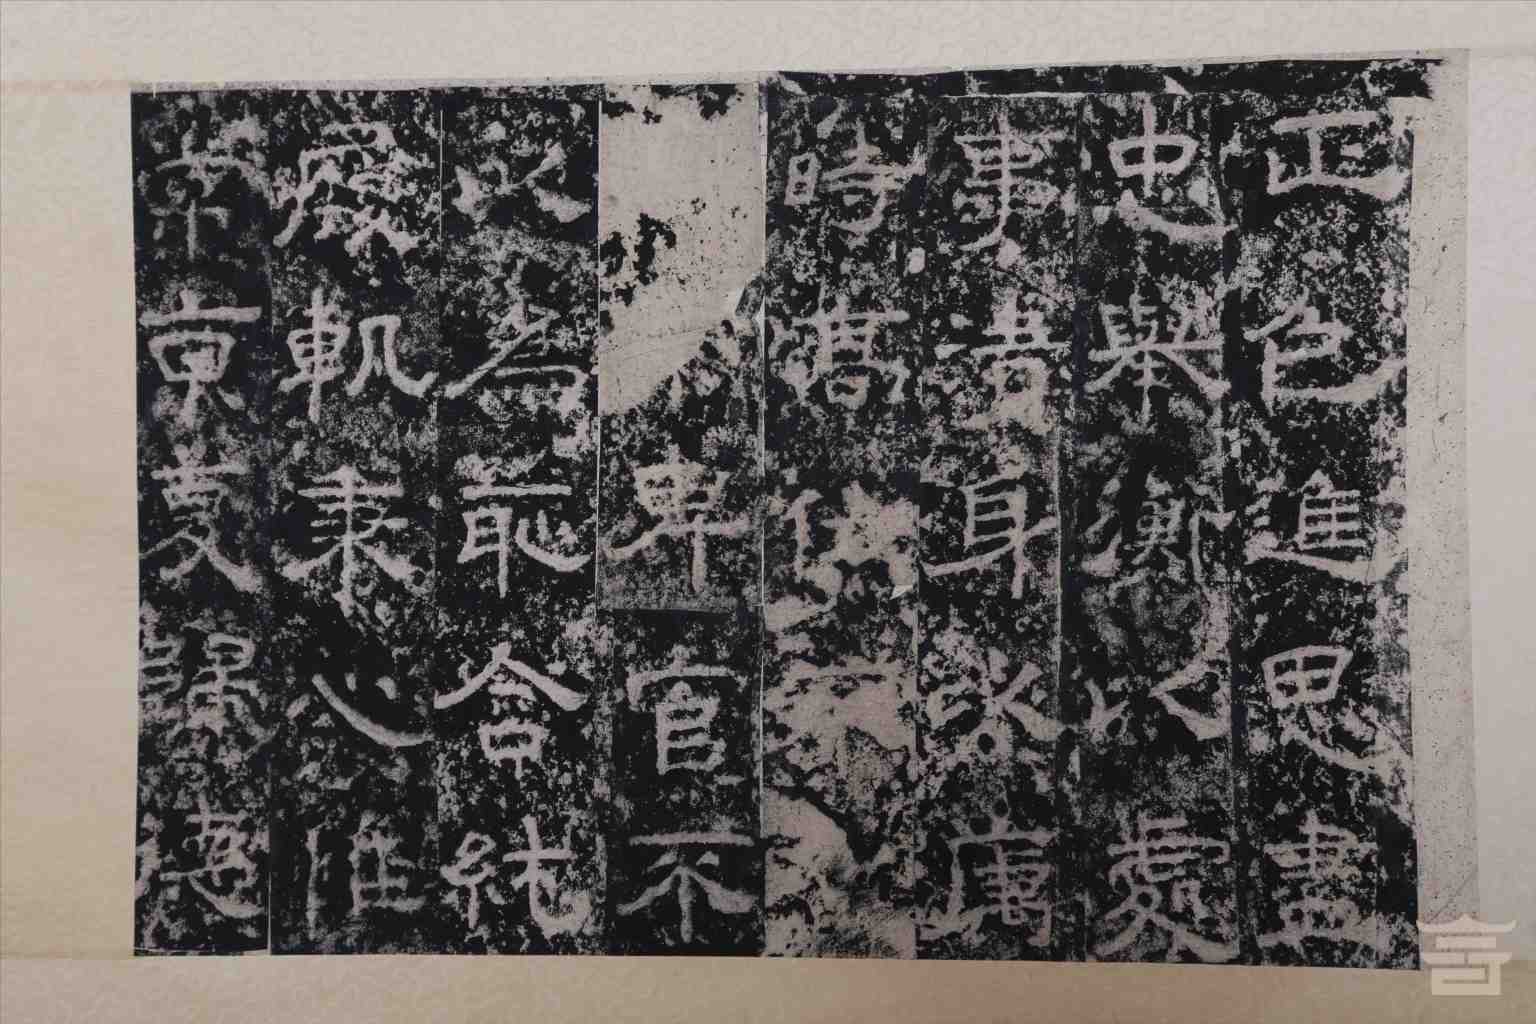 正色進思盡
忠舉衡以處
事清身以厲
時高位不
卑官不
以為恥含純
履軌秉心惟
常京夏歸德